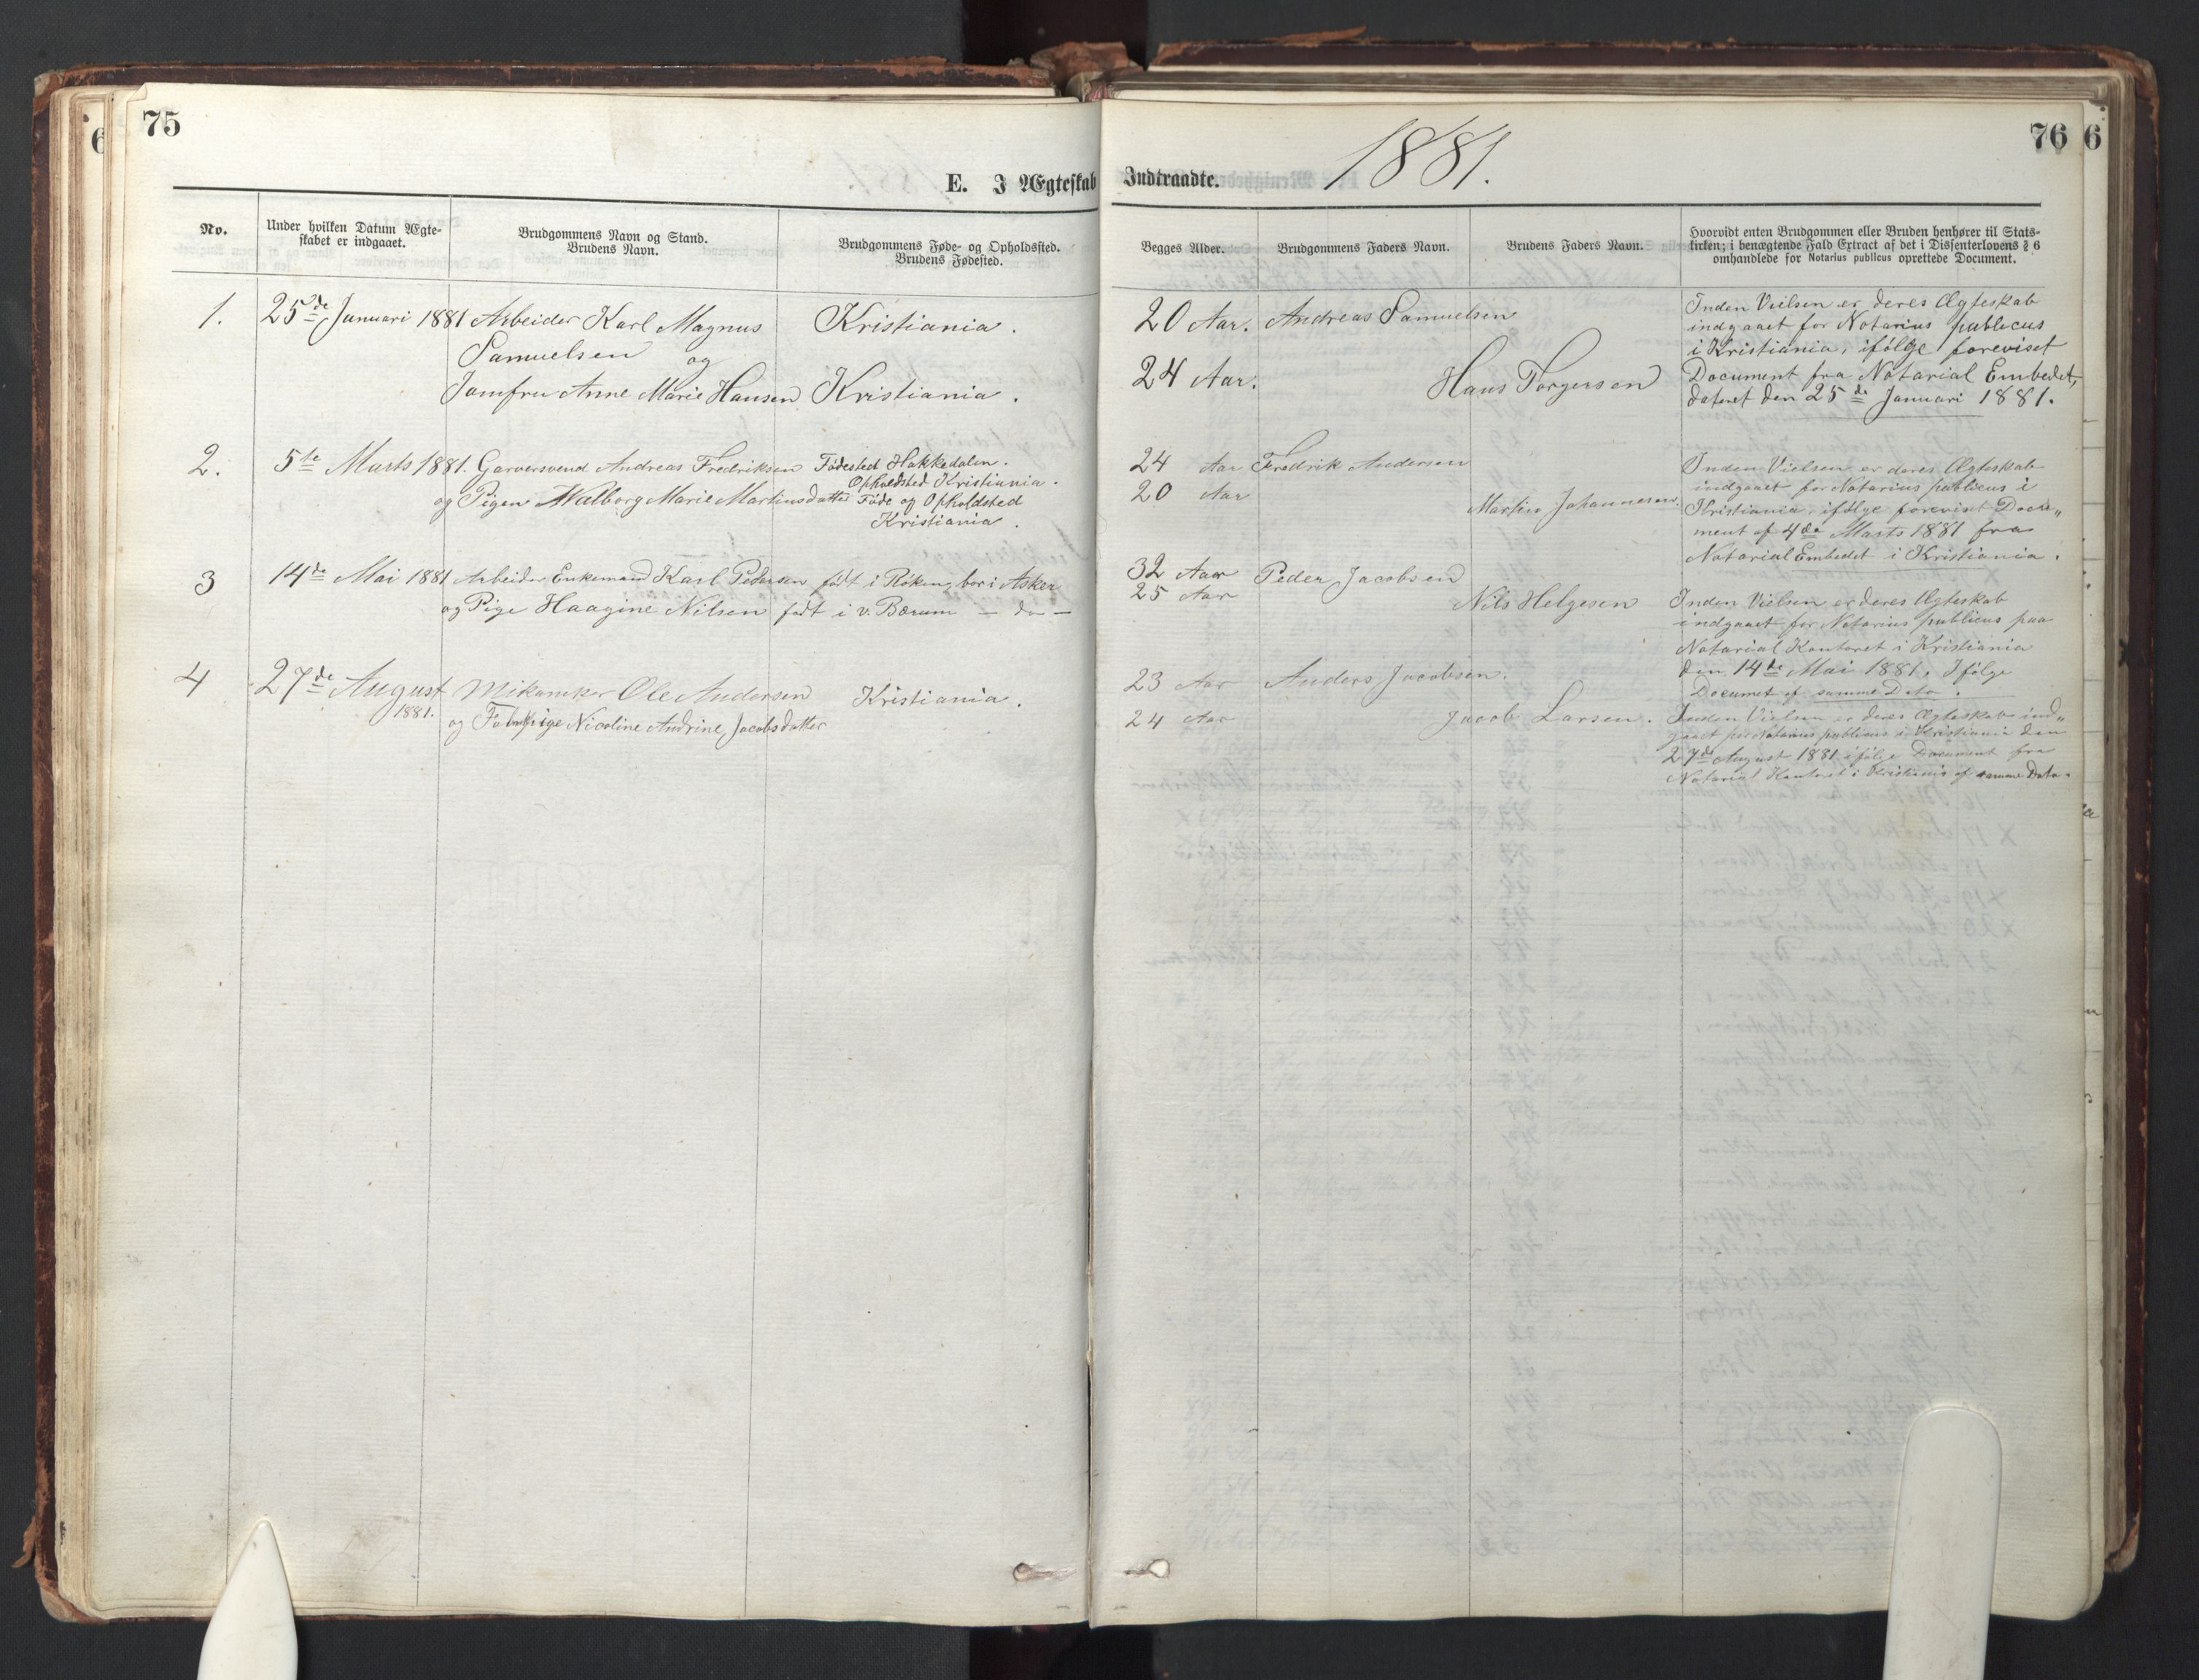 75
E. I Ægteskab
No.
Under hvilken Datum Ægte-
skabet er indgaaet.
Brudgommens Navn og Stand.
Brudens Navn.
Brudgommens Føde- og Opholdssted.
Brudens Fødested.
1.
25de Januari 1881
Arbeider Karl Magnus
Samuelsen og
Jomfru Anne Marie Hansen
Kristiania.
Kristiania.
2.
5te Marts 1881.
Garversvend Andreas Fredriksen
og Pigen Walborg Marie Martinsdatter
Fødested Hakkedalen.
Opholdsted Kristiania.
Føde og Opholdsted
Kristiania.
3
14de Mai 1881
Arbeider Enkemand Karl Pedersen
og Pige Haagine Nilsen
født i Røken, bor i Asker
født i v. Bærum — do —
4
27de August
1881.
Ole Andersen
og Nicoline Andrine Jacobsdatter
Kristiania.
76
6
Indtraadte.
1881.
Begges Alder.
Brudgommens Faders Navn.
Brudens Faders Navn.
Hvorvidt enten Brudgommen eller Bruden henhører til Stats-
kirken; i benægtende Fald Extract af det i Dissenterlovens § 6
omhandlede for Notarius publicus oprettede Document.
20 Aar.
24 Aar.
Andreas Samuelsen
Hans Torgersen
Inden Vielsen er deres Ægteskab
indgaaet for Notarius publicus
i Kristiania, ifølge foreviset
Document fra Notarial Embedet,
dateret den 25de Januari 1881.
24 Aar
20 Aar
Fredrik Andersen
Martin Johannesen.
Inden Vielsen er deres Ægteskab
indgaaet for Notarius publicus i
Kristiania, ifølge foreviset Docu„
ment af 4de Marts 1881 fra
Notarial Embedet i Kristiania.
32 Aar
25 Aar
Peder Jacobsen
Nils Helgesen
Inden Vielsen er deres Ægteskab
indgaaet for Notarius publicus paa
Notarial Kontoret i Kristiania
den 14de Mai 1881. Ifølge
Documet af samme Dato.
23 Aar
24 Aar
Anders Jacobsen.
Jacob Larsen.
Inden Vielsen er deres Ægteskab ind„
gaaet for Notarius publicus i Kristiania den
27de August 1881 ifølge Document fra
Notarial Kontoret i Kristiania af samme Dato.